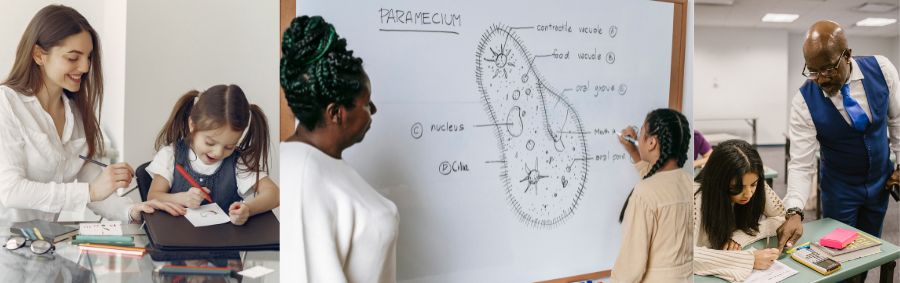 PARAMECIUM
contractile vacuole (A)
food vacuole (B)
oral groove (E)
(C) nucleus
(D) Cilia
oral